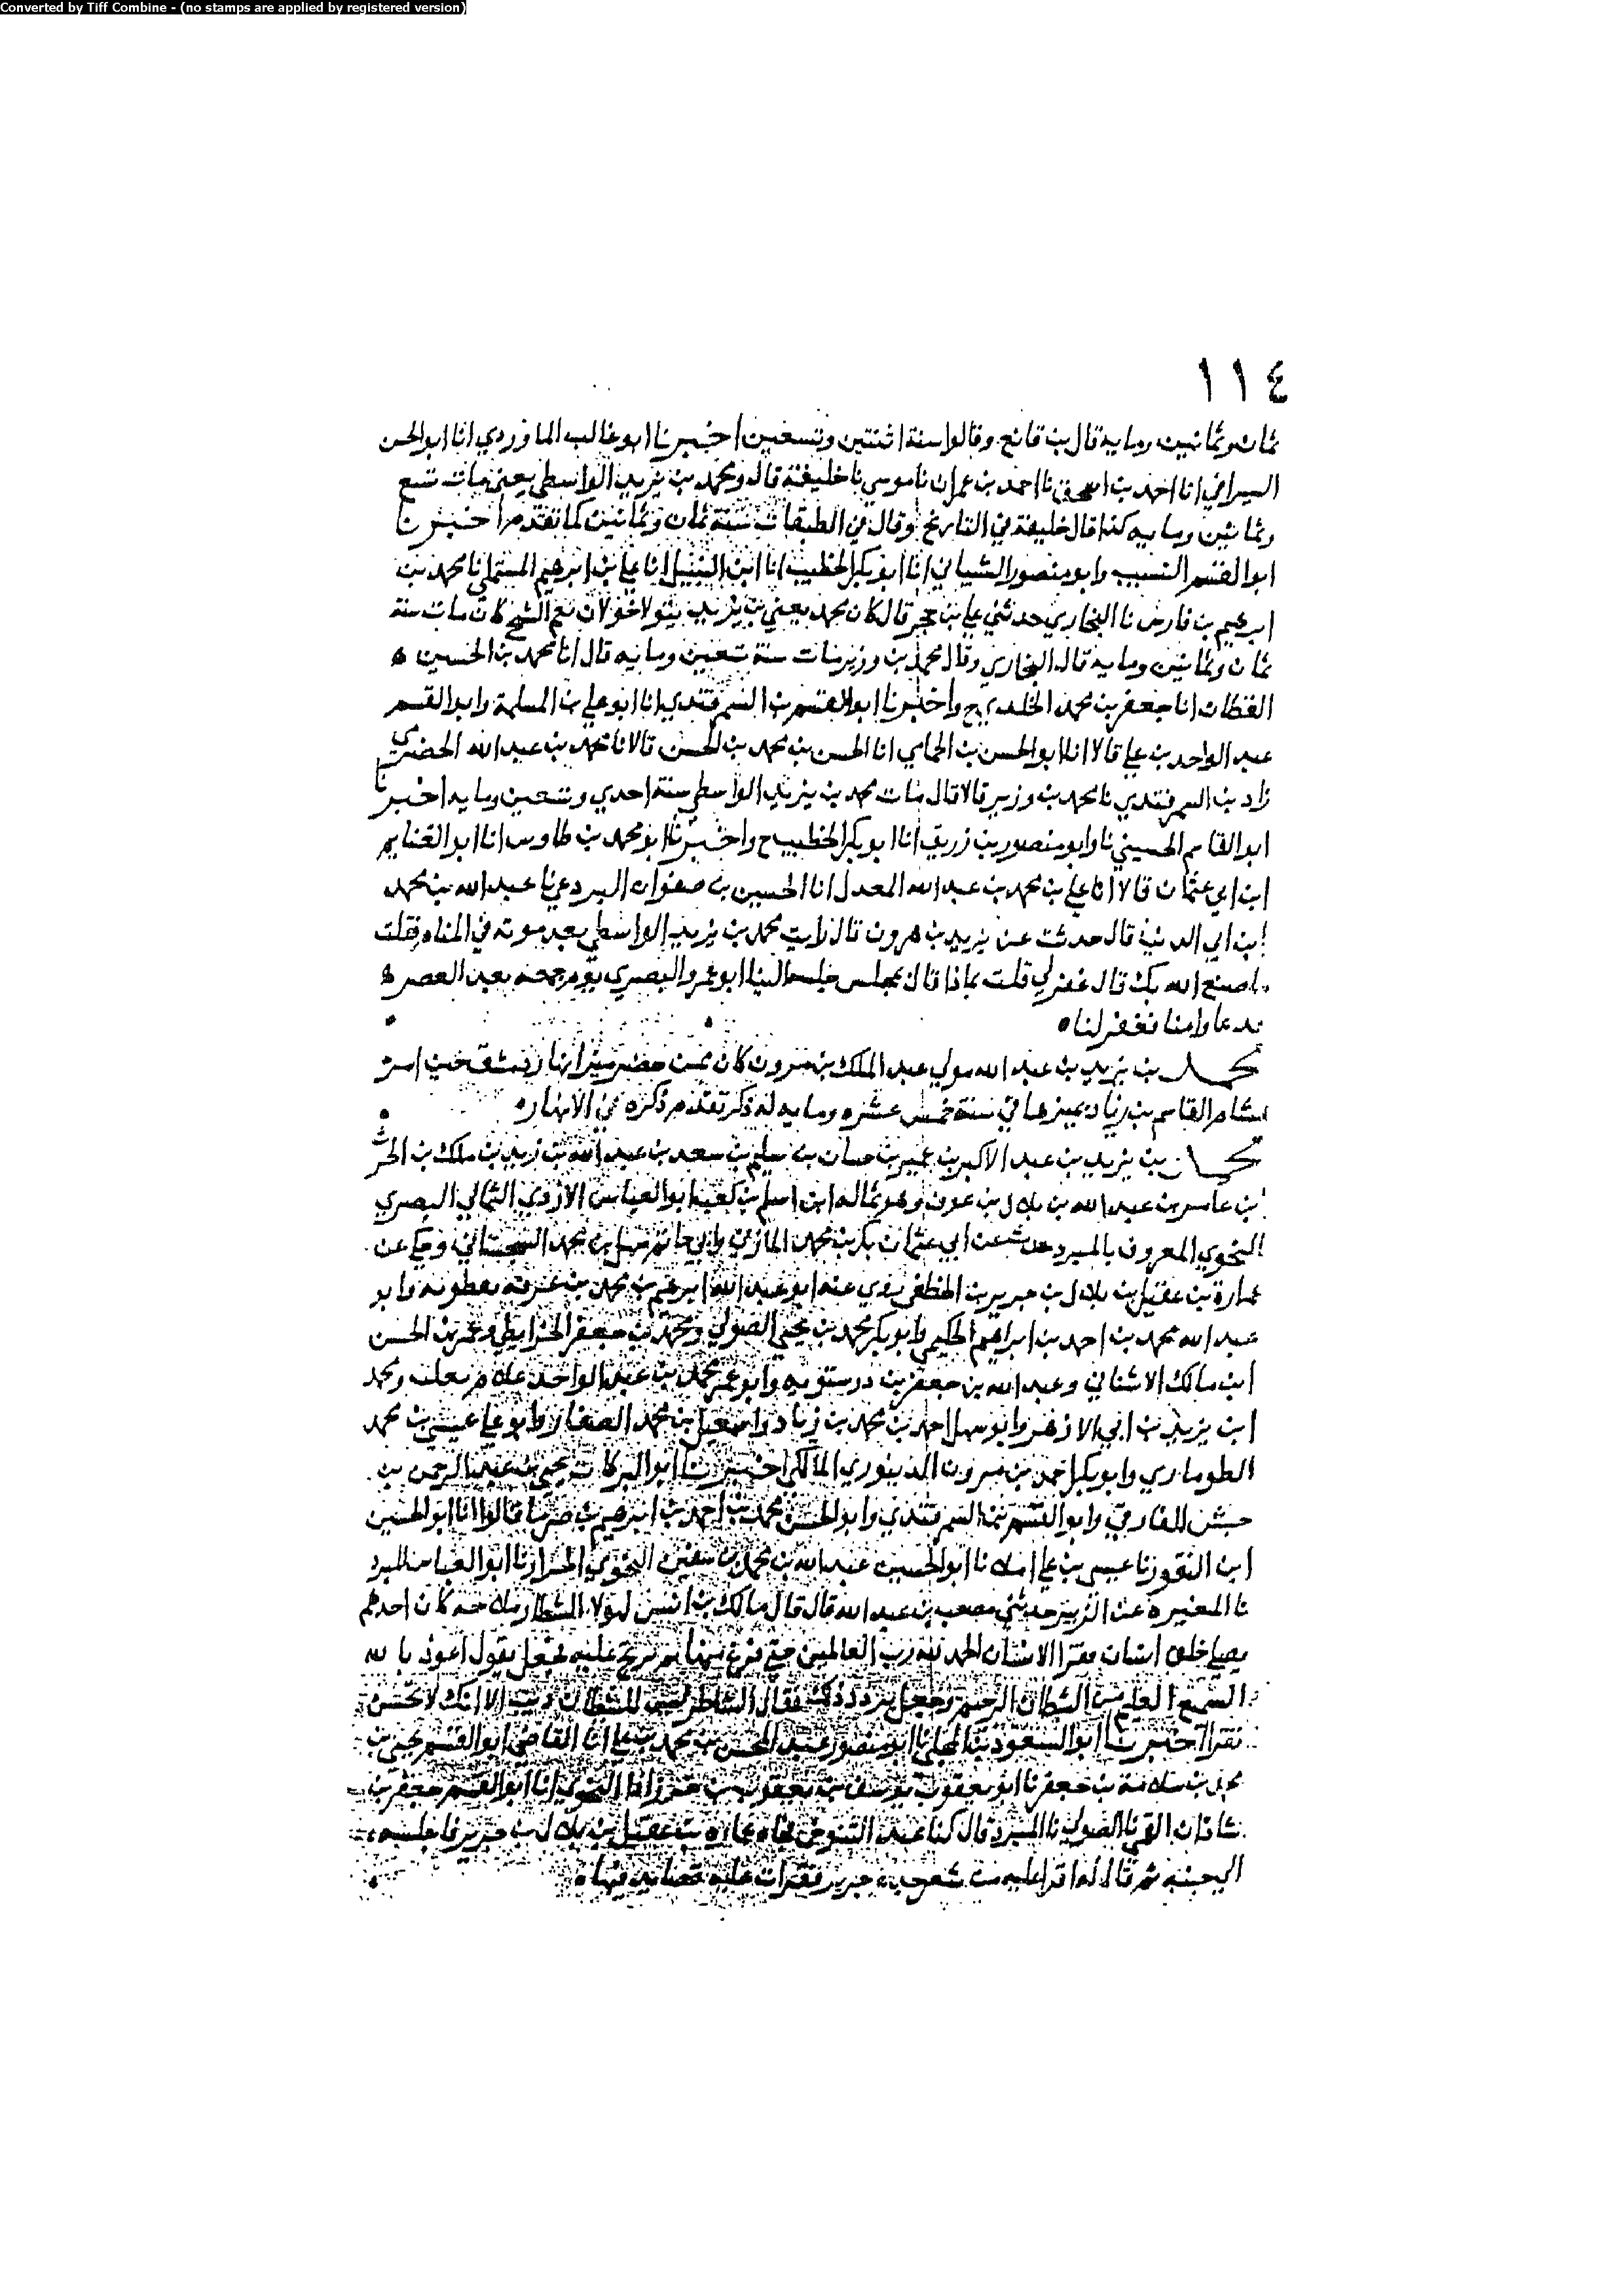 Converted by Tiff Combine - (no stamps are applied by registered version)
١١٤
ثمان وثمانين ومايه قال بن قانع وقالوا سنة اثنتين وتسعين اخبرنا ابو غالب الماوردي انا ابو الحسن
السيرافي انا احمد بن اسحق نا احمد بن عمران نا موسى نا خليفة قال ومحمد بن يزيد الواسطي يعني مات تسع
وثمانين ومايه كذا قال خليفة في التاريخ وقال في الطبقات سنة ثمان وثمانين كما تقدم اخبرنا
ابو القسم النسيب وابو منصور الشيباني انا ابو بكر الخطيب انا ابن الفضل انا علي بن ابرهيم المستملي نا محمد بن
ابرهيم بن فارس نا البخاري حدثني علي بن حجر قال كان محمد يعني بن يزيد يتولا خولان نعم الشيخ كان مات سنة
ثمان وثمانين ومايه قال البخاري وقال محمد بن وزير مات سنة تسعين ومايه قال انا محمد بن الحسين ه
القطان انا جعفر بن محمد الخلدي ح واخبرنا ابو القسم بن السمرقندي انا ابو علي بن المسلمة وابو القسم
عبد الواحد بن علي قالا انا ابو الحسن بن الحمامي انا الحسن بن محمد بن الحسن قالا نا محمد بن عبد الله الحضرمي
زاد بن السمرقندي نا محمد بن وزير قالا قال مات محمد بن يزيد الواسطي سنة احدي وتسعين ومايه اخبرنا
ابو القاسم الحسيني نا وابو منصور بن زريق انا ابو بكر الخطيب ح واخبرنا ابو محمد بن طاوس انا ابو الغنايم
ابن ابي عثمان قالا انا علي بن محمد بن عبد الله المعدل انا الحسين بن صفوان البردعي نا عبد الله بن محمد
ابن ابي الدنيا قال حدثت عن يزيد بن هرون قال رايت محمد بن يزيد الواسطي بعد موته في المنام فقلت
ما صنع الله بك قال غفر لي قلت بماذا قال بمجلس جلسه الينا ابو عمرو البصري يوم جمعه بعد العصر ه
يدعا وامنا فغفر لنا ه
محمد بن يزيد بن عبد الله مولي عبد الملك بن مرون كان ممن حضر ميز انهار دمشق حين امر
هشام القاسم بن زياد بميزها في سنة خمس عشره ومايه له ذكر تقدم ذكره في الانهار ه
محمد بن يزيد بن عبد الاكبر بن عمير بن حسان بن سليم بن سعد بن عبد الله بن زيد بن ملك بن الحرث
بن عامر بن عبد الله بن بلال بن عوف وهو ثماله ابن اسلم بن كعب ابو العباس الازدي الثمالي البصري
النحوي المعروف بالمبرد حدث عن ابي عثمان بكر بن محمد المازني وابي حاتم سهل بن محمد السجستاني وحكي عن
عمارة بن عقيل بن بلال بن جرير بن الخطفي روي عنه ابو عبد الله ابرهيم بن محمد بن عرفه نفطويه وابو
عبد الله محمد بن احمد بن ابراهيم الحكيمي وابو بكر محمد بن يحيي الصولي ومحمد بن جعفر الخرايطي وعمر بن الحسن
ابن مالك الاشناني وعبد الله بن جعفر بن درستويه وابو عمر محمد بن عبد الواحد غلام ثعلب ومحمد
ابن يزيد بن ابي الازهر وابو سهل احمد بن محمد بن زياد واسمعيل بن محمد الصفار وابو علي عيسي بن محمد
الطوماري وابو بكر احمد بن مرون الدينوري المالكي اخبرنا ابو البركات يحيي بن عبد الرحمن بن
حبيش الفارقي وابو القسم بن السمرقندي وابو الحسن محمد بن احمد بن ابرهيم بن صرما قالوا انا ابو الحسين
ابن النقور نا عيسي بن علي املا نا ابو الحسين عبد الله بن محمد بن سفين النحوي الخراز نا ابو العباس المبرد
نا المغيره عن الزبير حدثني مصعب بن عبد الله قال قال مالك بن انس لهولا الشطار ملاحه كان احدهم
يصلي خلف انسان فقرا الانسان الحمد لله رب العالمين حتي فرغ منها ثم ارتج عليه فجعل يقول اعوذ بالله
السميع العليم من الشيطان الرجيم وجعل يردد ذلك فقال الشاطر ليس للشيطان ذنب الا انك لا تحسن
تقرا اخبرنا ابو السعود بن المجلي نا ابو منصور عبد المحسن بن محمد بن علي انا القاضي ابو القسم يحيي بن
محمد بن سلامة بن جعفر نا ابو يعقوب يوسف بن يعقوب بن خرزاذ النحوي انا ابو القسم جعفر بن
شاذان القمي نا الصولي نا المبرد قال كنا عند التنوخي فجاه عماره بن عقيل بن بلال بن جرير فاجلسه
الي جنبه ثم قال له اقرا عليه من شعر جدك جرير فقرات عليه قصايد منها ه